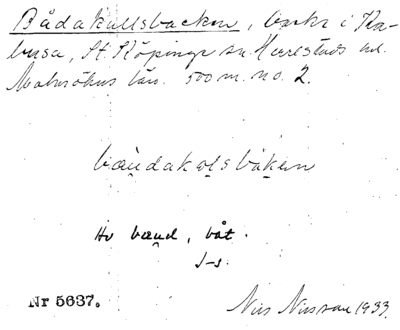 Bådakullsbacken, backe i Ka-
busa, St. Köpinge sn. Herrestads hd.
Malmöhus län. 500 m. no. 2.
bæu̯dakolsbaken
Hv bæud, båt.
J-s.
Nr 5637.
Nils Nilsson 1933.